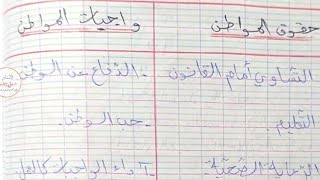 حقوق المواطن
واجبات المواطن
التساوي أمام القانون
- الدفاع عن الوطن
التعليم.
- حب الوطن.
الرعاية الصحية
- أداء الواجبات كالعمل